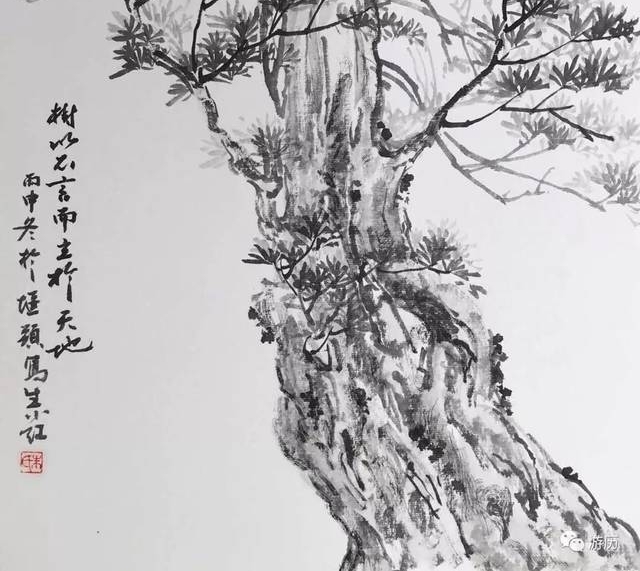 樹以不言而立於天地
丙申冬於堰頭寫生小記
游历